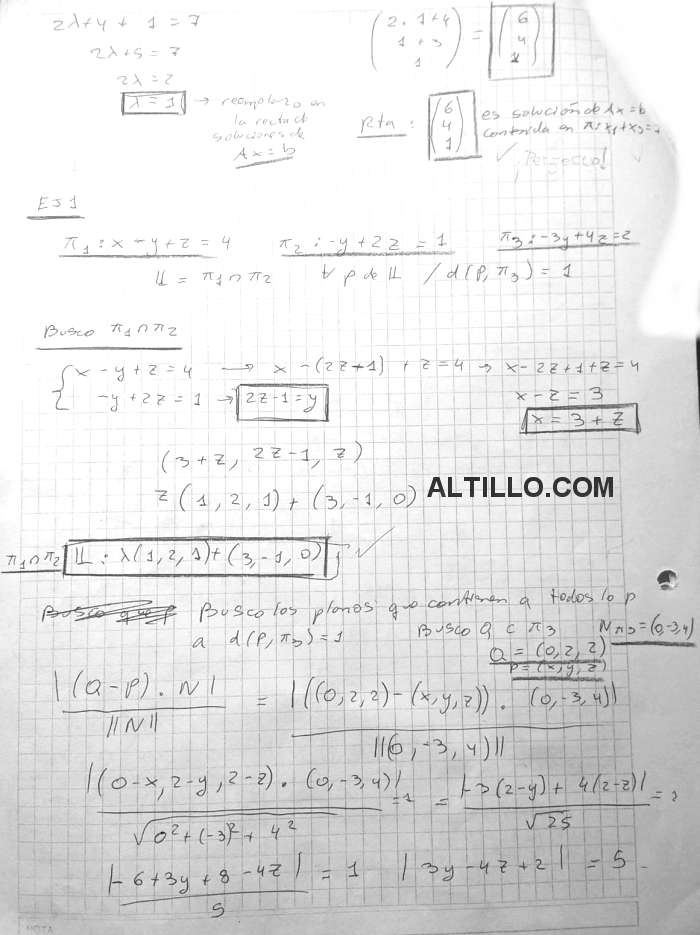 2λ+4 + 1 = 7
2λ+5 = 7
2λ = 2
λ = 1 → reemplazo en
la recta de
soluciones de
Ax = b
(2·1+4, 1+3, 1) = (6, 4, 1)
Rta : (6, 4, 1) es solución de Ax=b
contenida en π: x1+x3=7
✓ Perfecto!
EJ 1
π1 : x - y + z = 4 π2 : -y + 2z = 1 π3 : -3y + 4z = 2
𝕃 = π1 ∩ π2 ∀ p de 𝕃 / d(P, π3) = 1
Busco π1 ∩ π2
x - y + z = 4 → x - (2z-1) + z = 4 → x - 2z + 1 + z = 4
-y + 2z = 1 → 2z - 1 = y x - z = 3
x = 3 + z
(3+z, 2z-1, z)
z (1, 2, 1) + (3, -1, 0)
ALTILLO.COM
π1 ∩ π2 𝕃 : λ(1, 2, 1) + (3, -1, 0) ✓
Busco los planos que contienen a todos lo p
a d(P, π3) = 1 Busco Q ⊂ π3 Nπ3 = (0, -3, 4)
Q = (0, 2, 2)
P = (x, y, z)
|(Q-P) . N| / ||N|| = |((0, 2, 2) - (x, y, z)) . (0, -3, 4)| / ||(0, -3, 4)||
|(0-x, 2-y, 2-z) . (0, -3, 4)| / √(0² + (-3)² + 4²) = 1 = |-3(2-y) + 4(2-z)| / √25 =
|-6 + 3y + 8 - 4z| / 5 = 1 |3y - 4z + 2| = 5
NOTA